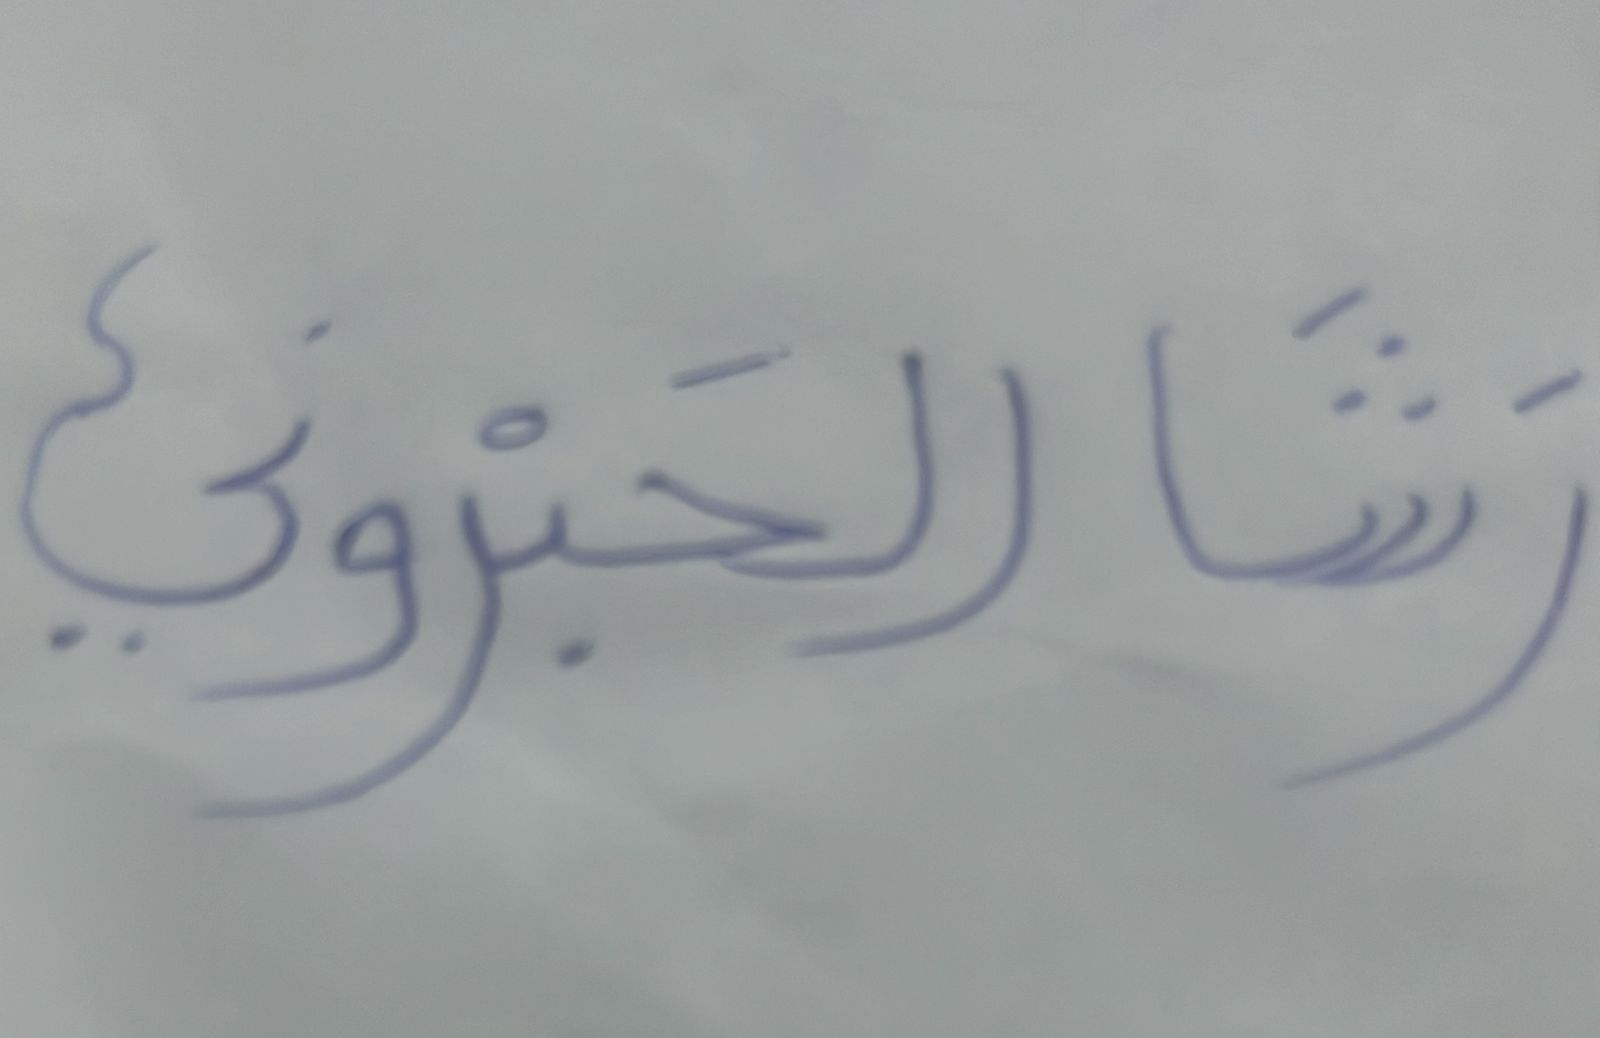 رَشَا الحَبْروني